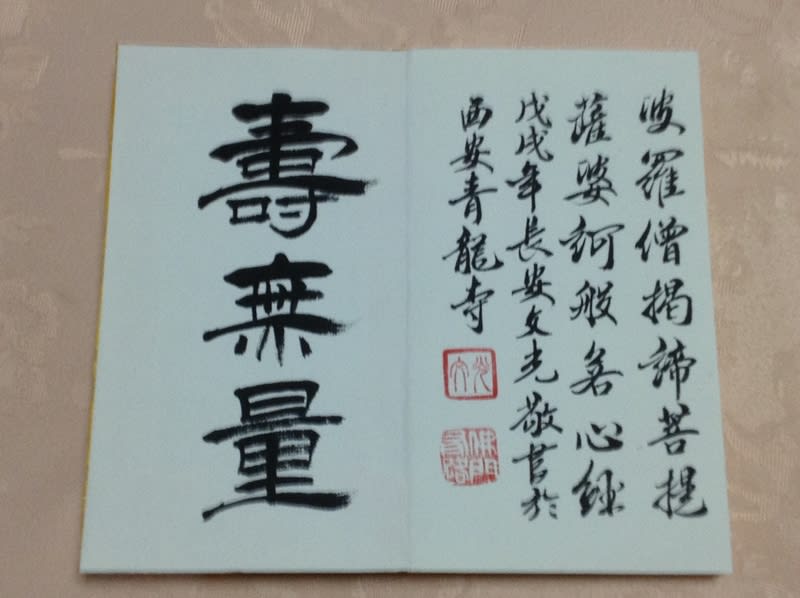 波羅僧揭諦菩提
薩婆訶般若心經
戊戌年長安文光敬書於
西安青龍寺
壽無量